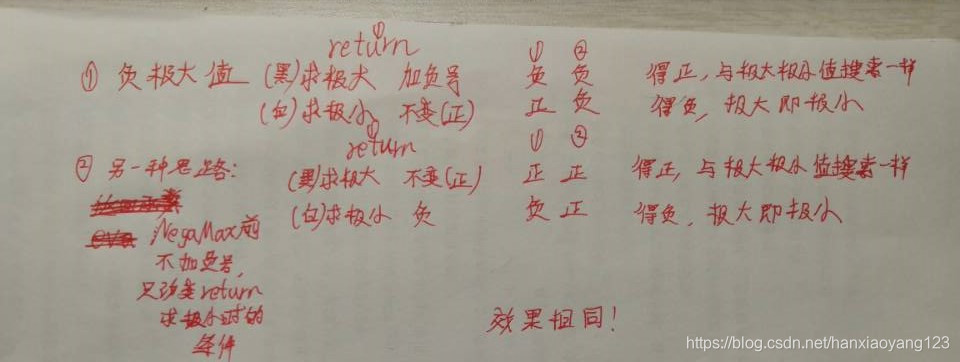 ① return ① ②
① 负极大值 (黑)求极大 加负号 负 负 得正,与极大极小值搜索一样
(白)求极小 不变(正) 正 负 得负,极大即极小
return ① ②
② 另一种思路: (黑)求极大 不变(正) 正 正 得正,与极大极小值搜索一样
(白)求极小 负 负 正 得负,极大即极小
eva NegaMax前
不加负号,
只改变return
求极小时的
条件
效果相同!
https://blog.csdn.net/hanxiaoyang123